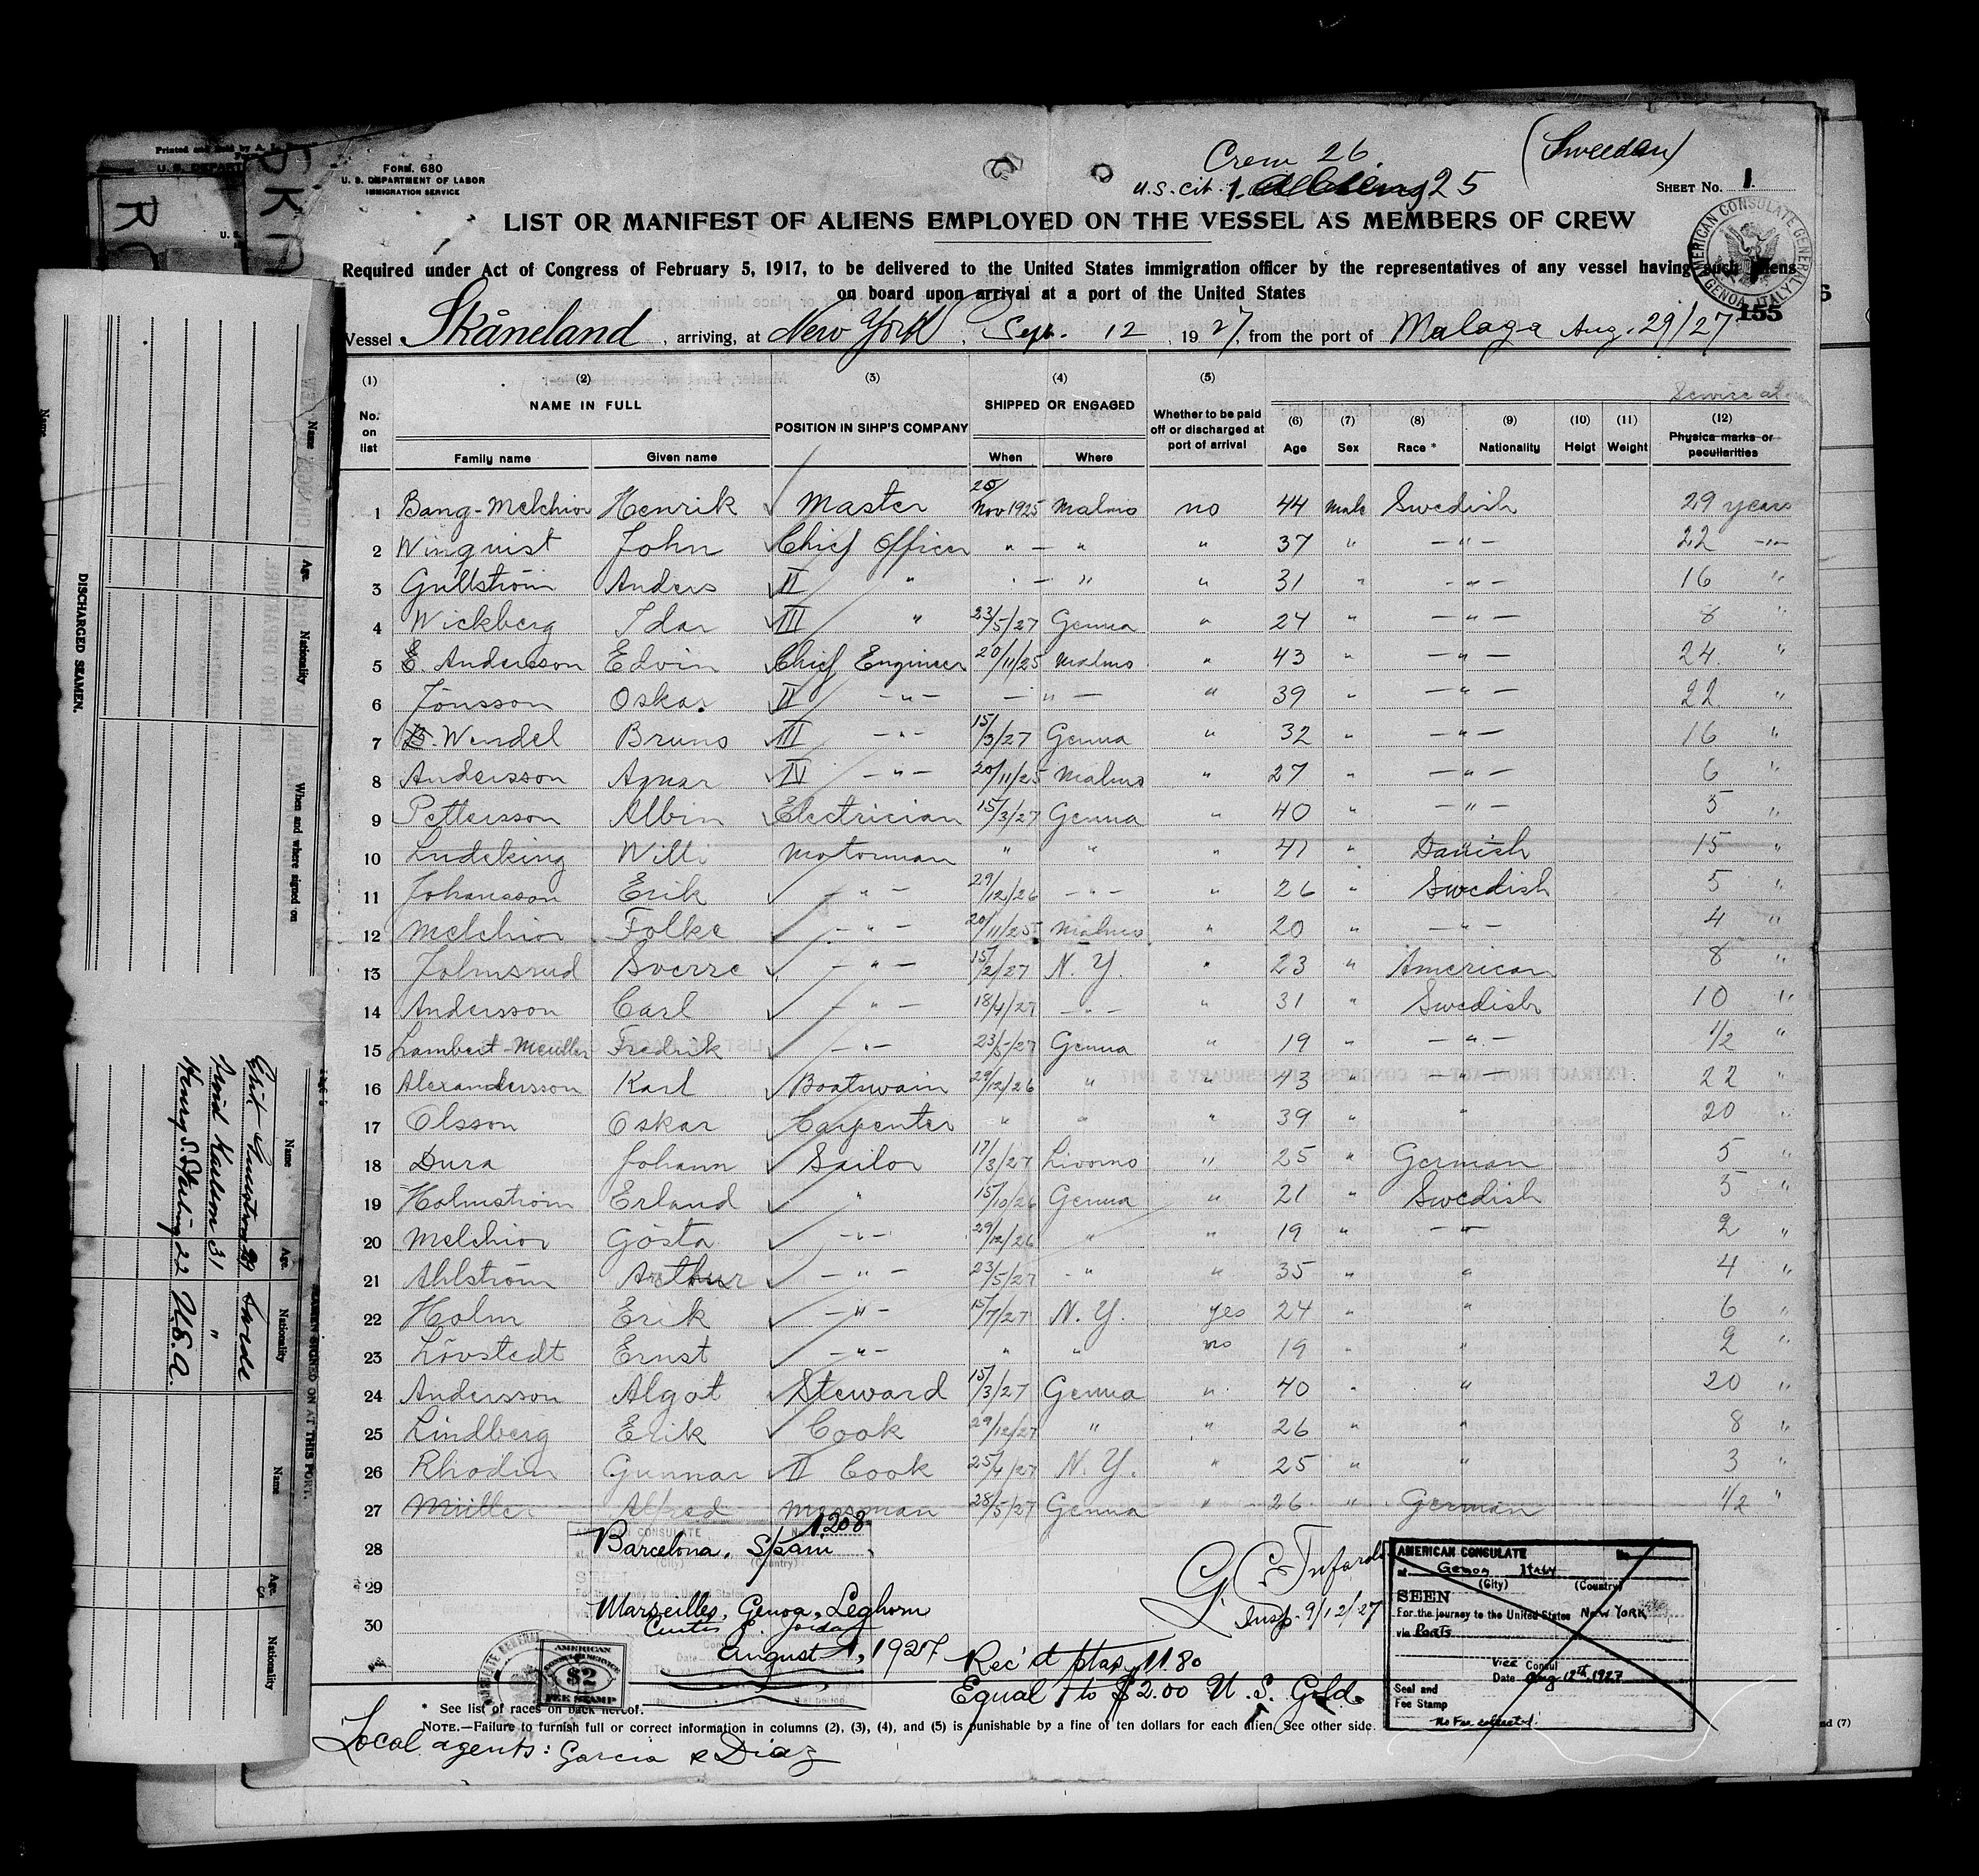 FORM. 680
U. S. DEPARTMENT OF LABOR
IMMIGRATION SERVICE
Crew 26.
U.S. Cit. 1. 25
(Sweedan)
SHEET No. 1
LIST OR MANIFEST OF ALIENS EMPLOYED ON THE VESSEL AS MEMBERS OF CREW
Required under Act of Congress of February 5, 1917, to be delivered to the United States immigration officer by the representatives of any vessel having such aliens
on board upon arrival at a port of the United States
AMERICAN CONSULATE GENERAL GENOA, ITALY
155
Vessel Skåneland, arriving, at New York, Sept. 12 1927, from the port of Malaga Aug. 29/27
(1) (2) (3) (4) (5)
No. on list NAME IN FULL POSITION IN SIHP'S COMPANY SHIPPED OR ENGAGED Whether to be paid off or discharged at port of arrival (6) Age (7) Sex (8) Race * (9) Nationality (10) Heigt (11) Weight (12) Physica marks or peculiarities
Family name Given name When Where
1 Bang-Melchior Henrik Master 20/Nov 1925 Malmo no 44 Male Swedish 29 years
2 Winquist John Chief Officer " — " " 37 " — " — 22 —"—
3 Gullström Anders II " " — " " 31 " - " - 16 "
4 Wickberg Idar III " 23/5/27 Genua " 24 " — " — 8 "
5 E. Andersson Edvin Chief Engineer 20/11/25 Malmo " 43 " — " — 24 "
6 Jönsson Oskar II — " — — " — " 39 — " — 22 "
7 B. Wendel Bruno III — " — 15/3/27 Genua " 32 " — " — 16 "
8 Andersson Agnar IV — " — 20/11/25 Malmo " 27 " — " — 6 "
9 Pettersson Albin Electrician 15/3/27 Genua " 40 " — " — 5 "
10 Ludeking Willi Motorman " " " 41 " Danish 15 "
11 Johansson Erik — " — 29/12/26 — " — " 26 " Swedish 5 "
12 Melchior Folke — " — 20/11/25 Malmo " 20 " — " — 4 "
13 Johnsrud Sverre — " — 15/2/27 N. Y. " 23 " American 8 "
14 Andersson Carl — " — 18/4/27 — " — " 31 " Swedish 10 "
15 Lambert-Meuller Fredrik — " — 23/5/27 Genua " 19 " — " — 1/2 "
16 Alexandersson Karl Boatswain 29/12/26 " " 43 " — " — 22 "
17 Olsson Oskar Carpenter " " " 39 " " 20 "
18 Dura Johann Sailor 17/3/27 Livorno " 25 " German 5 "
19 Holmström Erland " 15/10/26 Genua " 21 " Swedish 5 "
20 Melchior Gösta — " — 29/12/26 " " 19 " — " — 2 "
21 Ahlström Arthur — " — 23/5/27 - " " 35 " " 4 "
22 Holm Erik — " — 15/7/27 N. Y. yes 24 " " 6 "
23 Lövstedt Ernst — " — " " no 19 " " 2 "
24 Andersson Algot Steward 15/3/27 Genua " 40 " " 20 "
25 Lindberg Erik Cook 29/12/27 " " 26 " " 8 "
26 Rhodin Gunnar II Cook 25/4/27 N. Y. " 25 " " 3 "
27 Müller Alfred Messman 28/5/27 Genua " 26 " German 1/2 "
28
29
30
1208
Barcelona, Spain
Marseilles, Genoa, Leghorn
Curtis C. Jordan
August 1, 1927
Rec'd ptas 11.80
Equal to $2.00 U. S. Gold
Insp. 9/12/27
AMERICAN CONSULAR SERVICE
$2
FEE STAMP
AMERICAN CONSULATE No.
at Genoa Italy
(City) (Country)
SEEN
For the journey to the United States New York
via Ports
Vice Consul
Date Aug 12th, 1927
Seal and
Fee Stamp
No Fee collected
* See list of races on back hereof.
NOTE.—Failure to furnish full or correct information in columns (2), (3), (4), and (5) is punishable by a fine of ten dollars for each alien. See other side.
Local agents: Garcia & Diaz
DISCHARGED SEAMEN.
Name Age. Nationality When and where signed on
SEAMEN SIGNED ON AT THIS PORT.
Name Age. Nationality
Swede
Karlson 31 "
Henry S. Sterling 22 U.S.A.
Name Age. Nationality